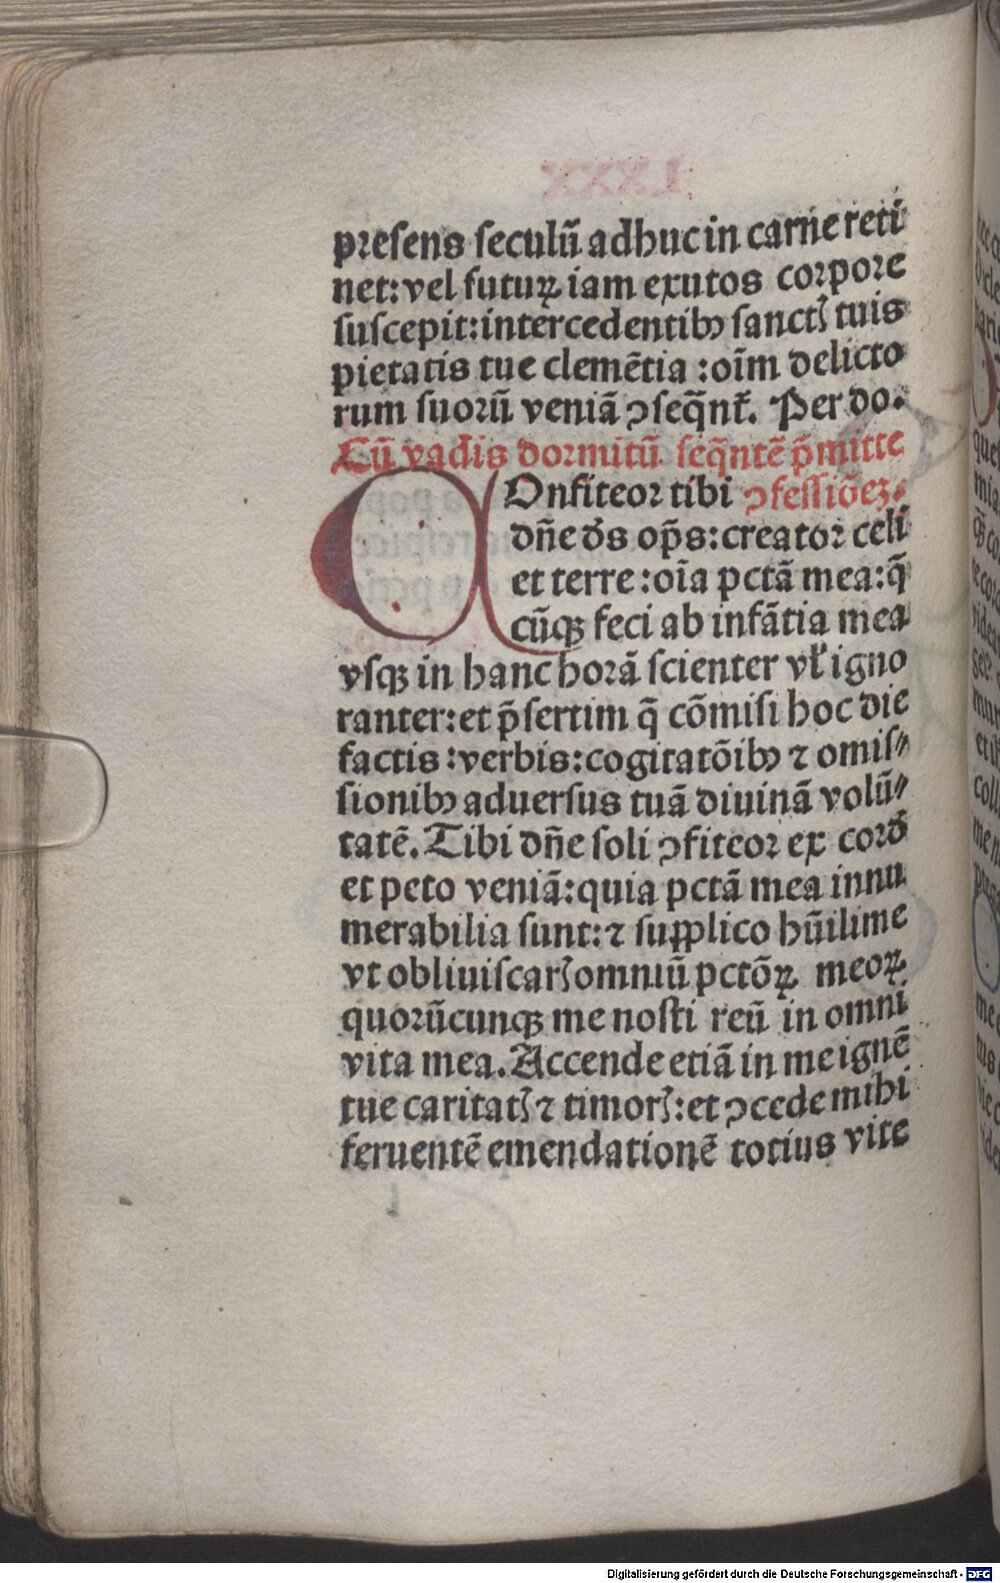 presens seculū adhuc in carne reti
net: vel futuꝝ iam exutos corpore
suscepit: intercedentibꝫ sanctꝭ tuis
pietatis tue clemētia : oīm delicto
rum suorū veniā ꝯseq̄nt᷑. Per do.
Cū vadis dormitū seq̄ntē p̄mitte
COnfiteor tibi ꝯfessiōeꝫ.
dn̄e ds̄ op̄s: creator celi
et terre : oīa pctā mea: q̄
cūqꝫ feci ab infātia mea
vsqꝫ in hanc horā scienter vl̓ igno
ranter: et p̄sertim q̄ cōmisi hoc die
factis : verbis: cogitatōibꝫ ⁊ omis⸗
sionibꝫ aduersus tuā diuinā volū⸗
tatē. Tibi dn̄e soli ꝯfiteor ex cord̄
et peto veniā: quia pctā mea innu
merabilia sunt: ⁊ supplico hūilime
vt obliuiscarꝭ omniū pctōꝝ meoꝝ
quorūcunqꝫ me nosti reū in omni
vita mea. Accende etiā in me ignē
tue caritatꝭ ⁊ timorꝭ: et ꝯcede mihi
feruentē emendationē totius vite
Digitalisierung gefördert durch die Deutsche Forschungsgemeinschaft - DFG